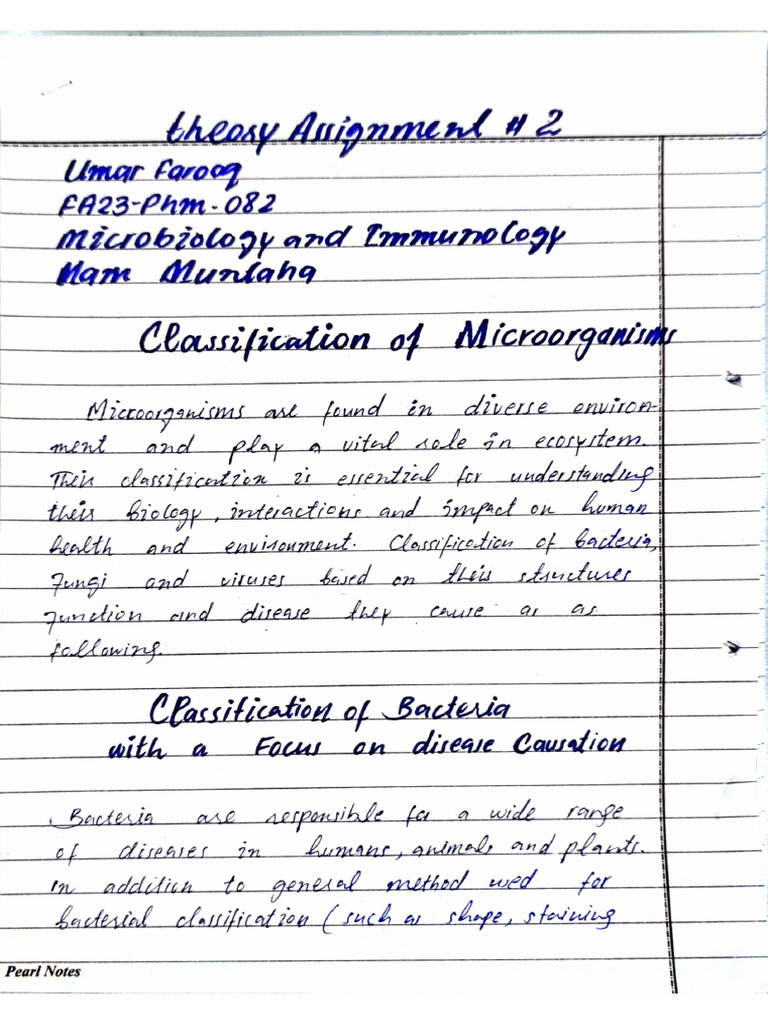 Theory Assignment # 2
Umar Farooq
FA23-Phm-082
Microbiology and Immunology
Mam Muntaha
Classification of Microorganisms
Microorganisms are found in diverse environ-
ment and play a vital role in ecosystem.
Their classification is essential for understanding
their biology, interactions and impact on human
health and environment. Classification of bacteria,
Fungi and viruses based on their structures
function and disease they cause as as
following.
Classification of Bacteria
with a Focus on disease Causation
Bacteria are responsible for a wide range
of diseases in humans, animals and plants.
In addition to general method used for
bacterial classification (such as shape, staining
Pearl Notes